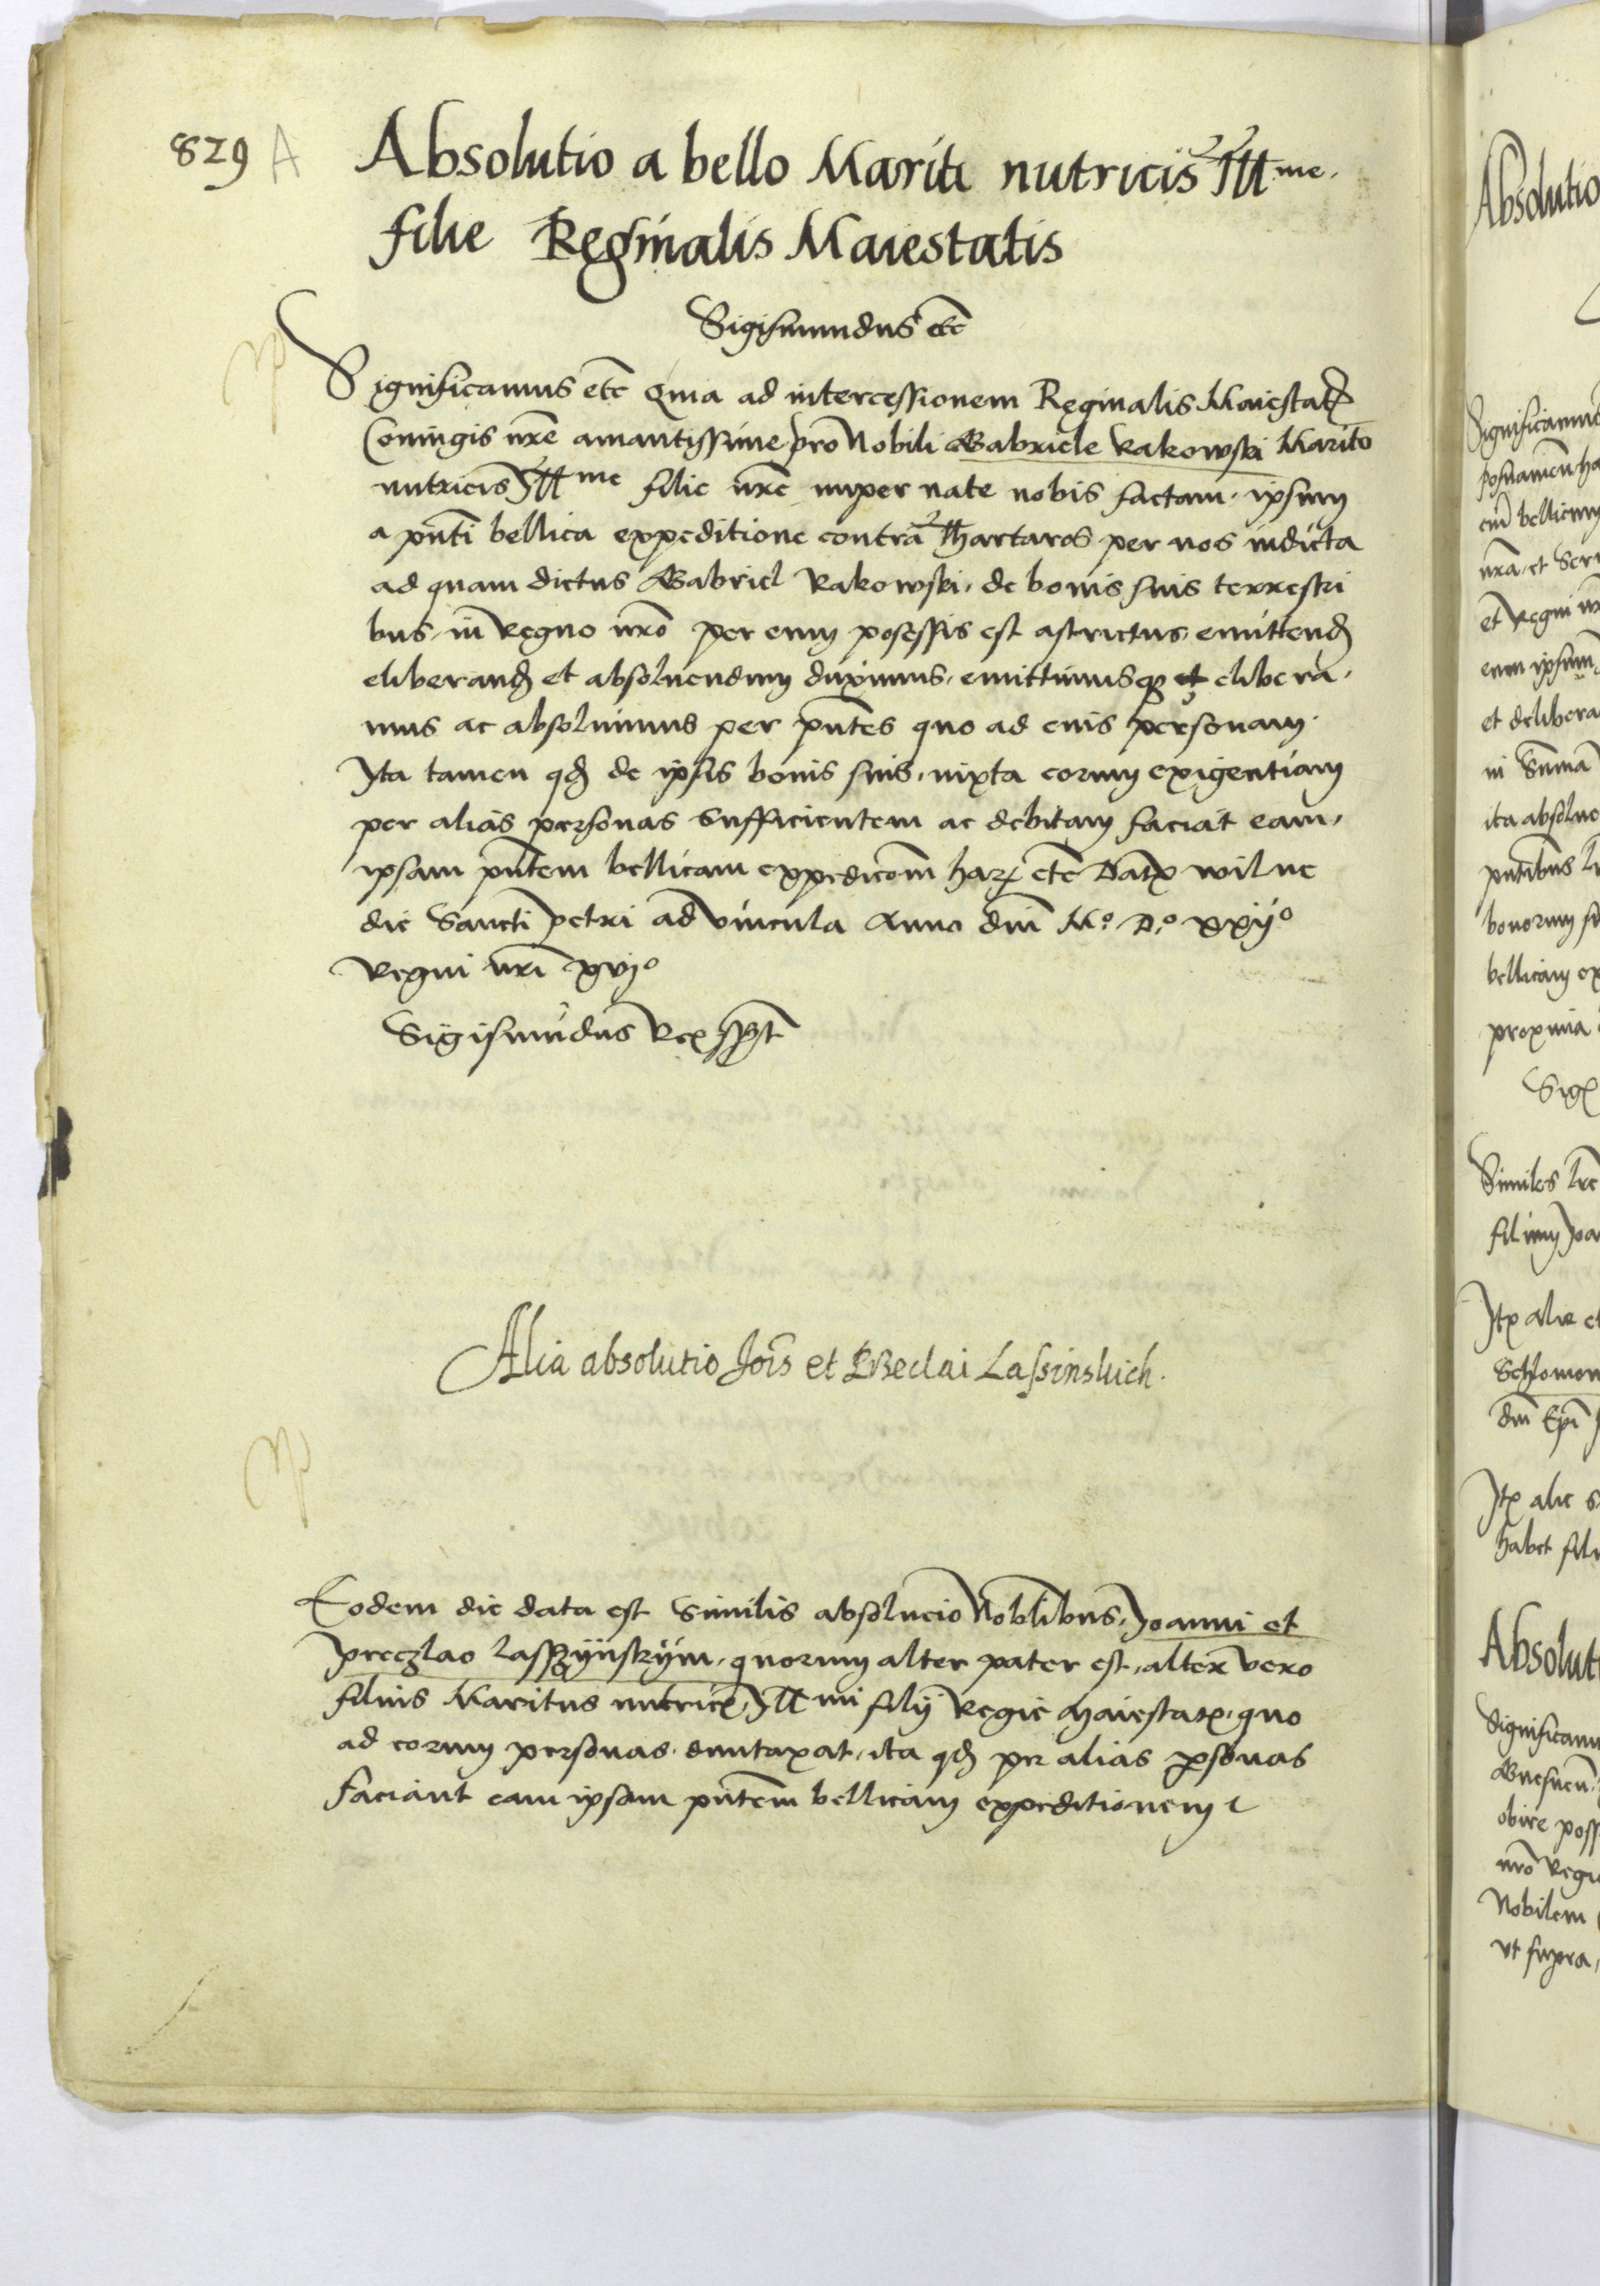 829 A
Absolutio a bello Mariti nutricis Illme.
filie Reginalis Maiestatis
Sigismundus etc
Significamus etc Quia ad intercessionem Reginalis Maiestatꝭ
Coniugis nr̄e amantissime pro Nobili Gabriele Rakowski Marito
nutricis Illme filie nr̄e nuper nate nobis factam. ipsum
a pn̄ti bellica expeditione contra Thartaros per nos indicta
ad quam dictus Gabriel Rakowski. de bonis suis terrestri
bus. in Regno nr̄o per eum posessis est astrictus. emittend̄
eliberand̄ et absoluendum duximus. emittimusqꝫ et elibera.
mus ac absoluimus per pn̄tes quo ad eius personam.
Ita tamen qd̄ de ipsis bonis suis. iuxta eorum exigentiam
per alias personas sufficientem ac debitam faciat eam.
ipsam pn̄tem bellicam expedicōm harꝝ etc Datꝭ wilne
die Sancti petri ad vincula Anno dn̄i Mº. Dº. xxijº
Regni nr̄i xvjº
Sigismūdus Rex sspt
Alia absolutio Joīs et Preclai Lassinskich.
Eodem die data est similis absolucio Noblibus. Joanni et
Preczlao lasszÿnskÿm. quorum alter pater est. alter vero
filius Maritus nutricꝭ. Illmi filij Regie Maiestatꝭ. quo
ad eorum personas. duntaxat. ita qd̄ per alias ꝑsonas
faciant eam ipsam pn̄tem bellicam expeditionem
Absolutio
Significamus
bellicum
nr̄a. et
et Regni
eum ipsum
et delibera
ita absolue
pn̄tibus
bonorum
bellicam ex
proxima
Sigꝭ
Similes lr̄e
filium Joa
Itꝭ alie et
dn̄i Ep̄i
Itꝭ alie s
habet fil
Absolut
Significamu
obire poss
nr̄o Regn
Nobilem
vt supra.